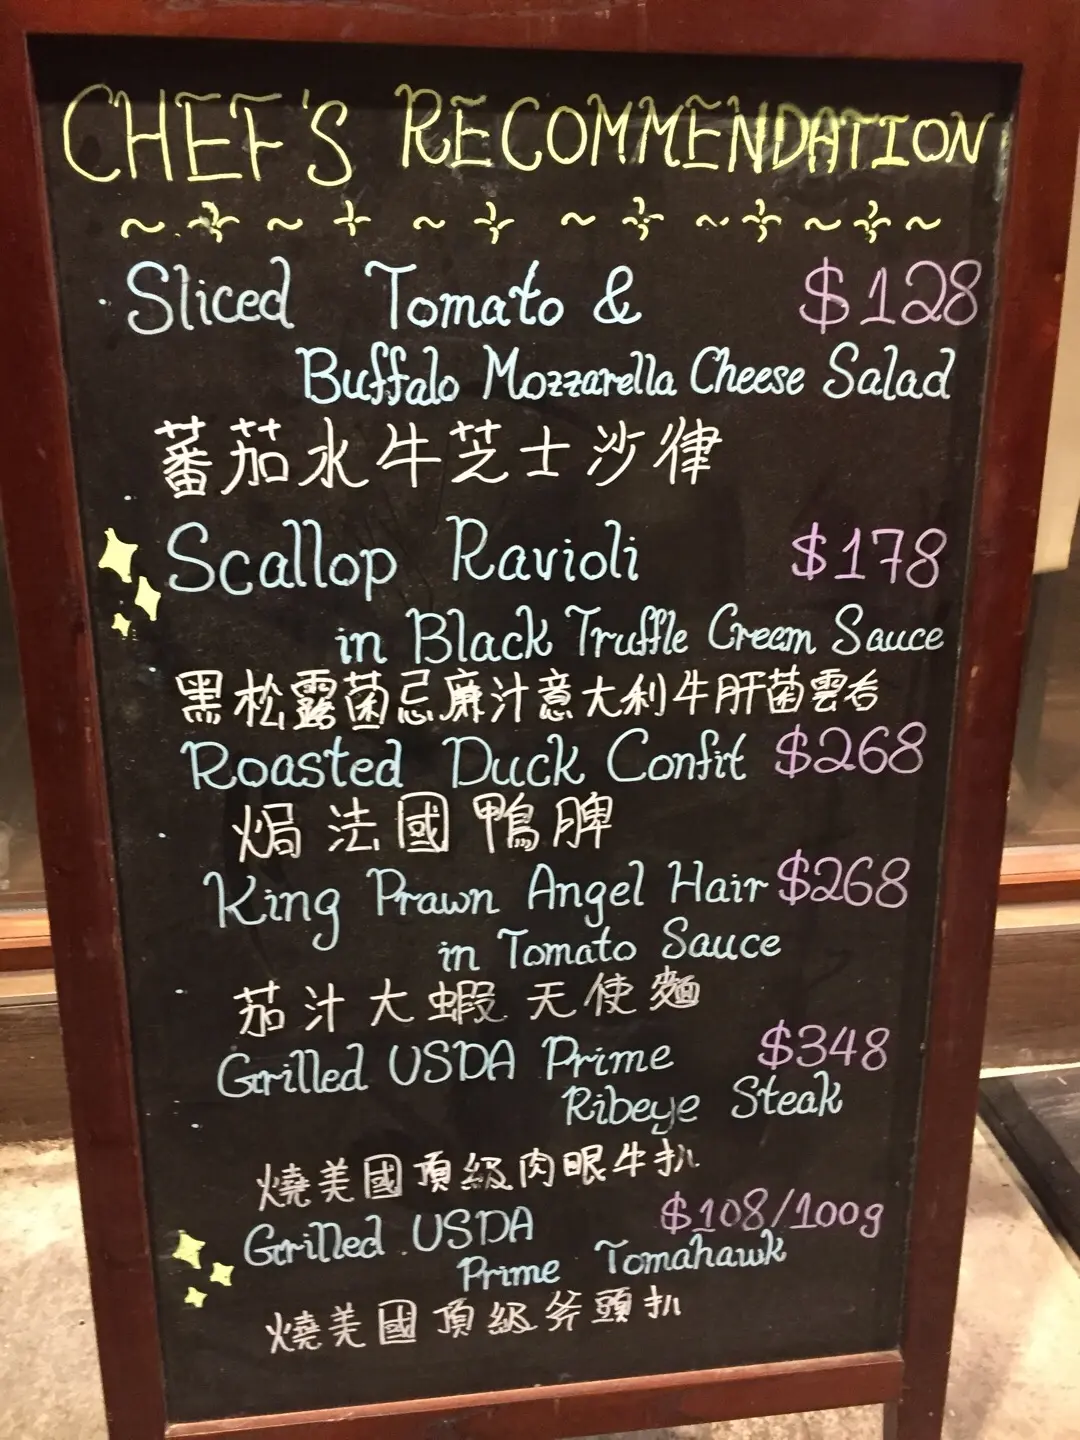 CHEF'S RECOMMENDATION
Sliced Tomato & $128
Buffalo Mozzarella Cheese Salad
蕃茄水牛芝士沙律
Scallop Ravioli $178
in Black Truffle Creem Sauce
黑松露菌忌廉汁意大利牛肝菌雲吞
Roasted Duck Confit $268
焗法國鴨脾
King Prawn Angel Hair $268
in Tomato Sauce
茄汁大蝦天使麵
Grilled USDA Prime $348
Ribeye Steak
燒美國頂級肉眼牛扒
Grilled USDA $108/100g
Prime Tomahawk
燒美國頂級斧頭扒